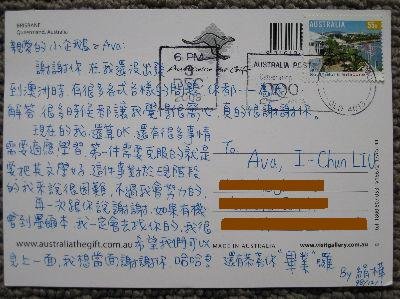 BRISBANE
Queensland, Australia
親愛的小企鵝=Ava:
謝謝你在我還沒出發
到澳洲時有很多各式各樣的問題 你都一一為我
解答 很多時候都讓我覺得很窩心 真的很謝謝你。
現在的我還算OK 還有很多事情
需要適應學習。第一件需要克服的就是
要把英文學好 這件事對於現階段
的我來說很困難,不過我會努力的,
再一次跟你說謝謝,如果有機
會到墨爾本 我一定會去找你的,我很
希望我們可以
見上一面,我想當面謝謝你 哈哈!
還有恭喜你"畢業"囉
By 絹樺
6 PM
AUSTRALIA POST
AUSTRALIA
55c
To
Ava, I-Chun LIU
www.australiathegift.com.au
MADE IN AUSTRALIA
www.visitgallery.com.au